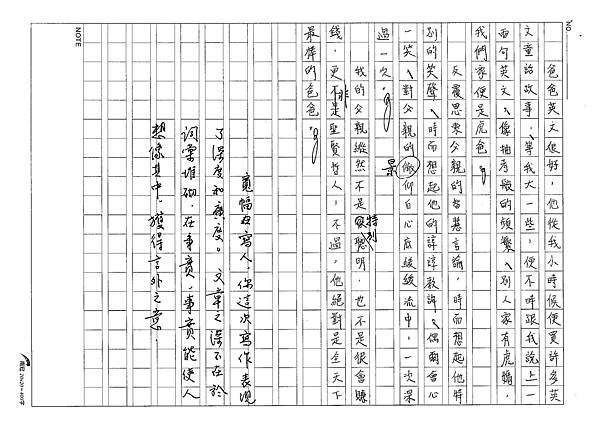 NO
爸爸英文很好，他從我小時候便買許多英
文童話故事，等我大一些，便不時跟我說上一
兩句英文、像抽考般的頻繁、別人家有虎媽，
我們家便是虎爸。
反覆思索父親的智慧言論，時而想起他特
別的笑聲、時而想起他的諄諄教誨、偶爾會心
一笑、對父親的最仰自心底緩緩流中，一次深
過一次。
我的父親縱然不是特別聰明，也不是很會賺
錢，更非是聖賢哲人，不過，他絕對是全天下
最棒的爸爸。
寬幅好寫人，你這次寫作表現
了深度和廣度。文章之深不在於
詞藻堆砌，在事實，事實能使人
想像其中，獲得言外之意．
NOTE
20x20=400字